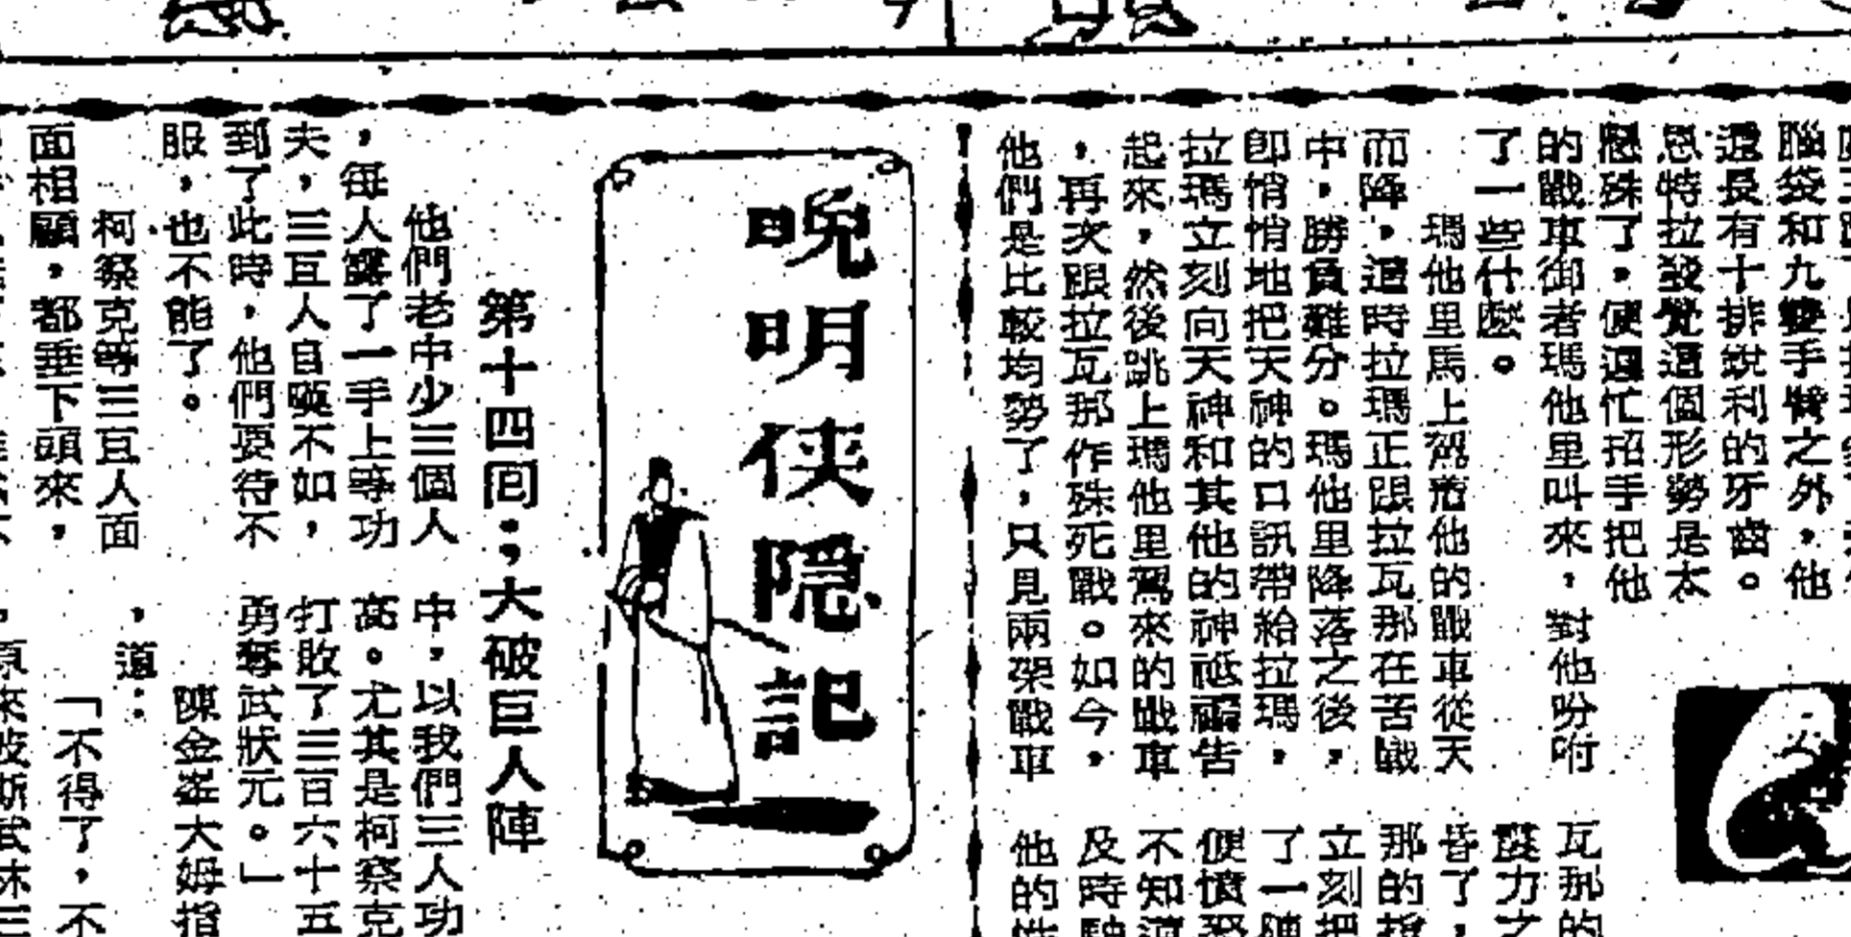 腦袋和九雙手臂之外，他
還長有十排銳利的牙齒。
恩特拉發覺這個形勢是太
懸殊了，便連忙招手把他
的戰車御者瑪他里叫來，對他吩咐
了一些什麼。
瑪他里馬上駕着他的戰車從天
而降，這時拉瑪正跟拉瓦那在苦戰
中，勝負難分。瑪他里降落之後，
即悄悄地把天神的口訊帶給拉瑪，
拉瑪立刻向天神和其他的神祗禱告
起來，然後跳上瑪他里駕來的戰車
，再次跟拉瓦那作殊死戰。如今，
他們是比較均勢了，只見兩架戰車
瓦那的
護力之
了，
那的
立刻把
了一陣
便憤怒
不知
及時
他的
晚明侠隐記
第十四回：大破巨人陣
他們老中少三個人
，每人露了一手上等功
夫，三巨人自嘆不如，
到了此時，他們要待不
服，也不能了。
柯察克等三巨人面
面相顧，都垂下頭來，
中，以我們三人功
高。尤其是柯察克
打敗了三百六十五
勇奪武狀元。」
陳金崟大姆指
，道：
「不得了，不
，原來波斯武林三